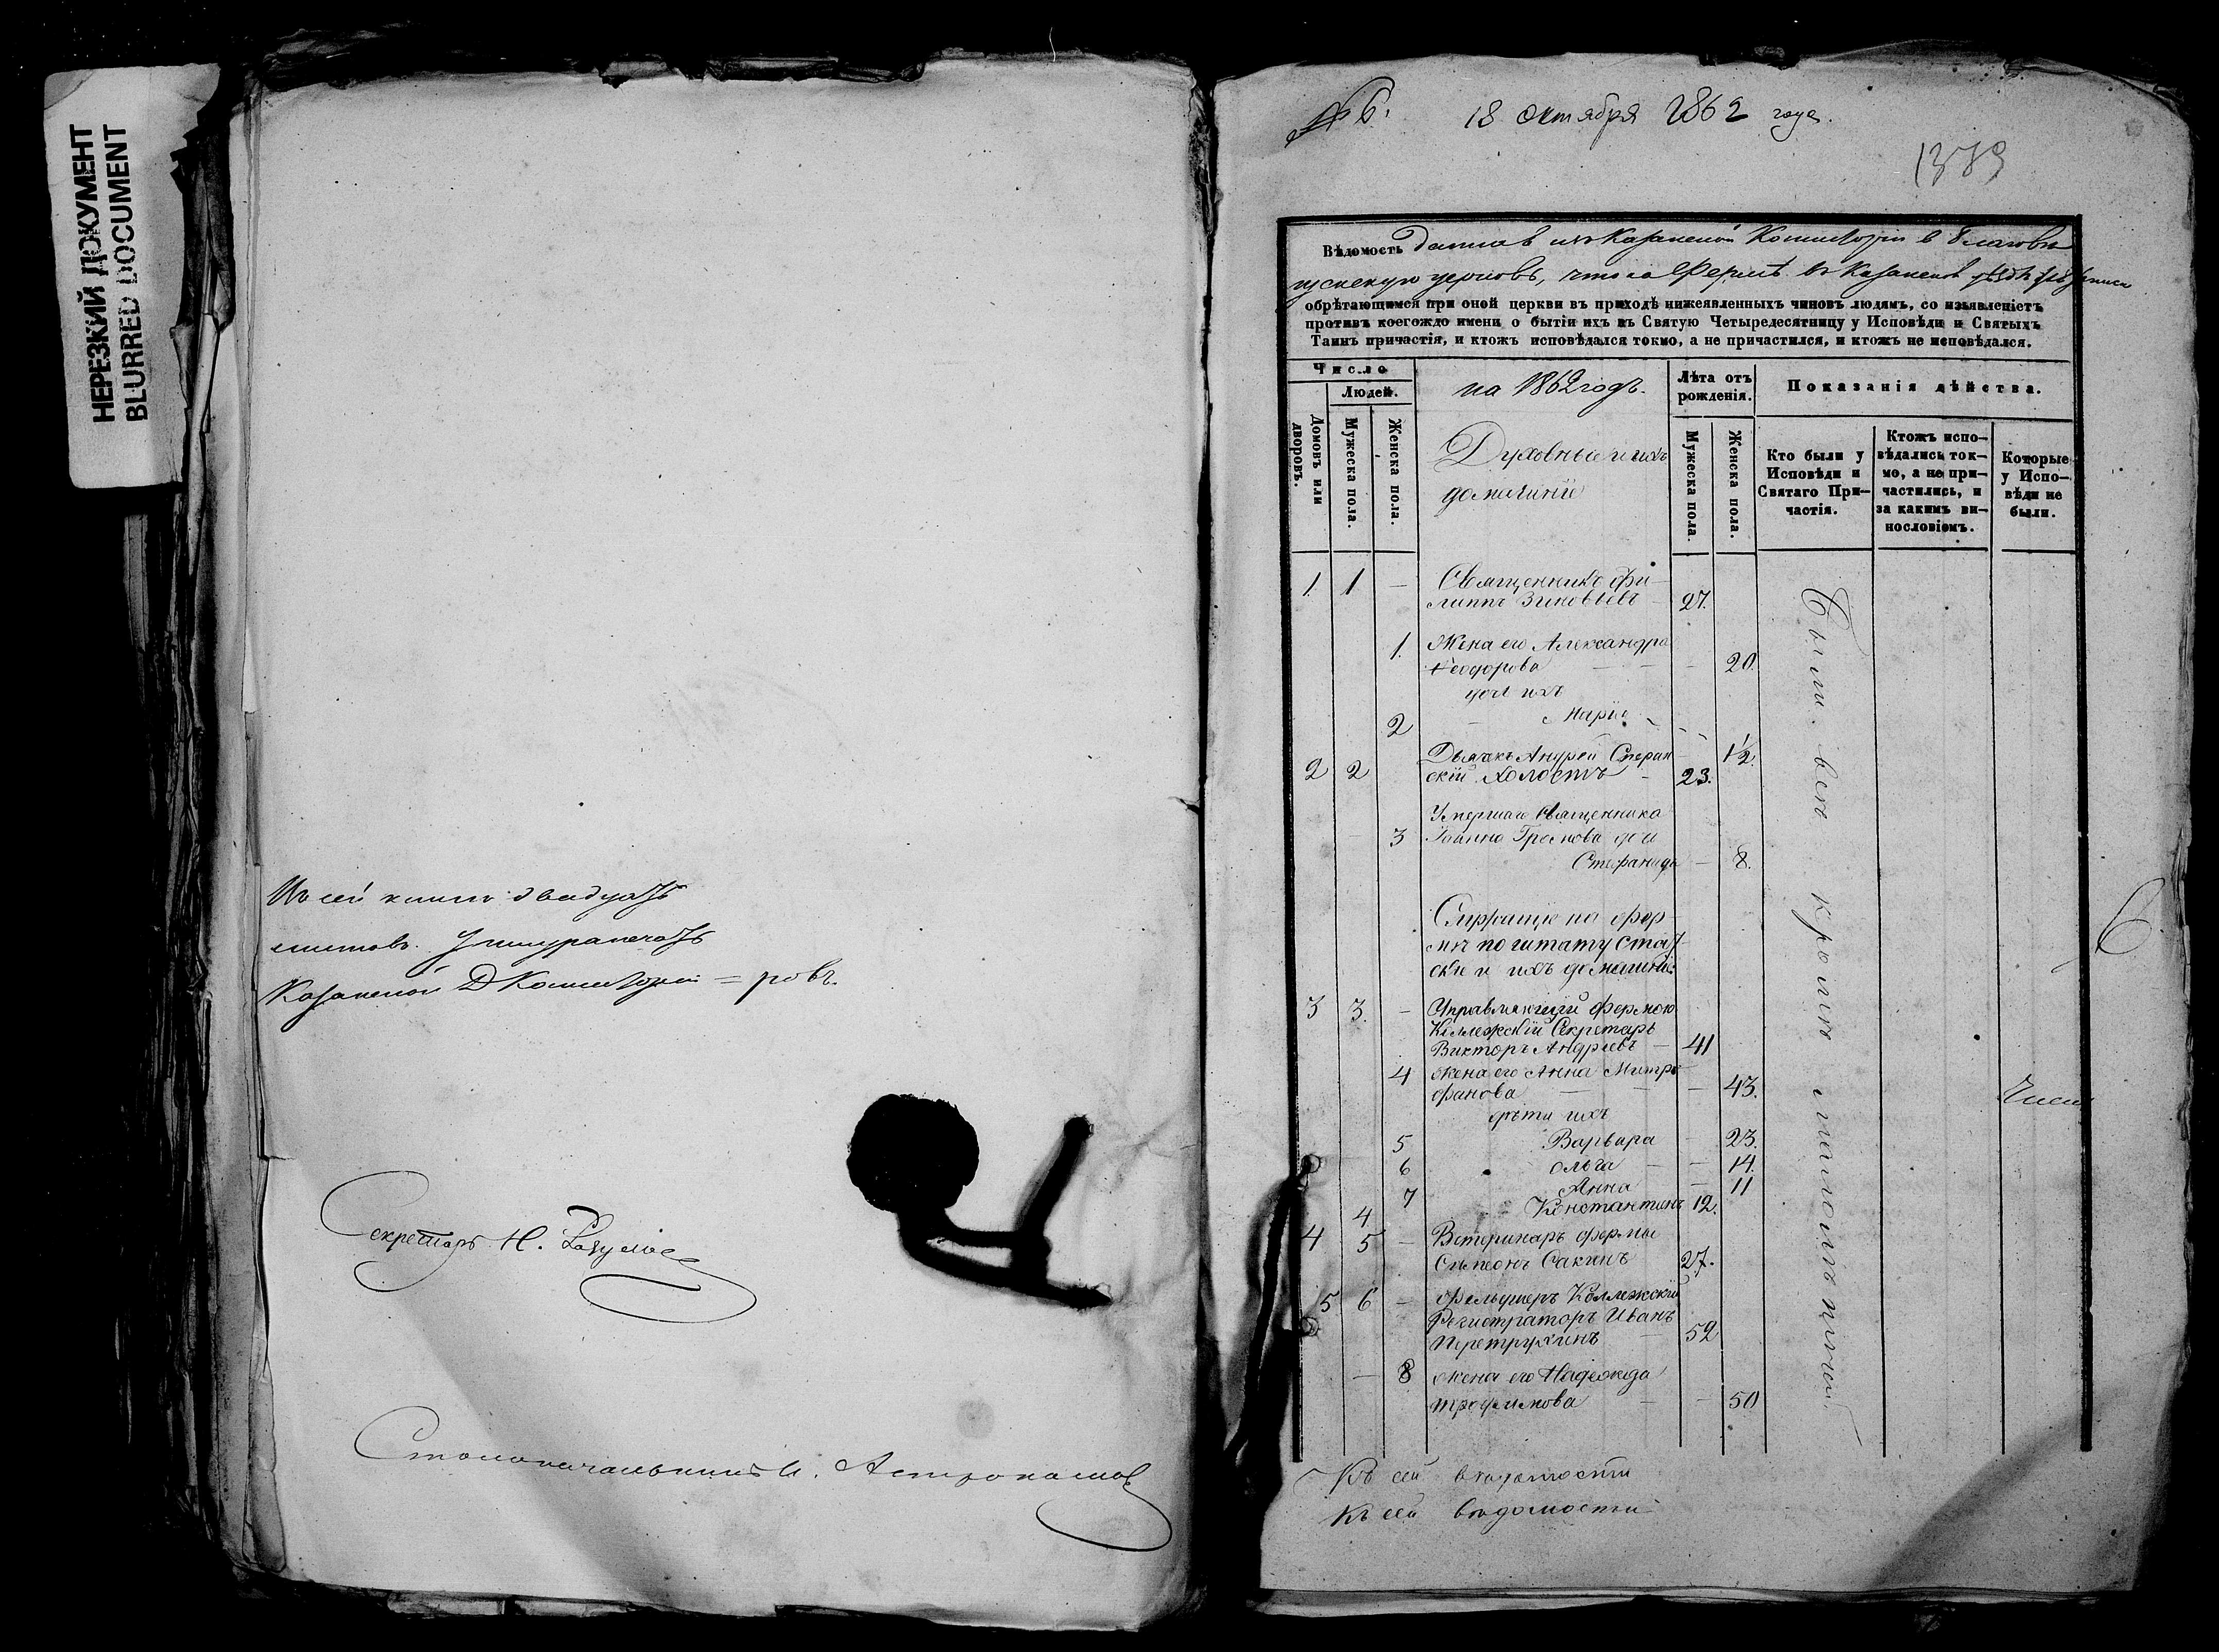 НЕРЕЗКИЙ ДОКУМЕНТ
BLURRED DOCUMENT
Въ сей книгѣ двадцать
листовъ.
Казанской Д Консисторіи = ровъ.
Секретарь Н.
Столоначальникъ И.
№ 6. 18 Октября 1862 года.
1379
Вѣдомость данная изъ Казанской Консисторіи въ
церковь, что на Фермѣ въ Казанскомъ уѣздѣ
обрѣтающимся при оной церкви въ приходѣ нижеявленныхъ чиновъ людямъ, со изъявленіетъ
противъ коегождо имени о бытіи ихъ въ Святую Четыредесятницу у Исповѣди и Святыхъ
Таинъ причастія, и ктожъ исповѣдался токмо, а не причастился, и ктожъ не исповѣдался.
Число
Людей.
Домовъ или дворовъ.
Мужеска пола.
Женска пола.
на 1862 годъ.
Духовные и ихъ
домашніе
Лѣта отъ
рожденія.
Мужеска пола.
Женска пола.
Показанія дѣйства.
Кто были у
Исповѣди и
Святаго При-
частія.
Ктожъ испо-
вѣдались ток-
мо, а не при-
частились, и
за какимъ ви-
нословіемъ.
Которые
у Испо-
вѣди не
были.
1. 1 — Священникъ Фи-
липпъ Зиновьевъ — 27.
1. Жена его Александра
Ѳеодорова — — — 20.
дочь ихъ
2 — Марія
1/2.
Дьячекъ Андрей Сперан
2 2 скій Холостъ — 23.
Умершаго священника
3 Іоанна Громова дочь
Стефанида — 8.
Служащіе на фер-
мѣ по штату
и ихъ домашніе
3 3. — Управляющій фермою
Коллежскій Секретарь
Викторъ Андреевъ — 41
4 жена его Анна Митро
фанова — — 43.
дѣти ихъ
5 Варвара — 23.
6 Ольга — — 14.
7 Анна — 11
4 Константинъ 12.
4 5 — Ветеринаръ фермы
Симеонъ Сакинъ 27.
5 6 — Фельдшеръ Коллежскій
Регистраторъ Иванъ
Перетрухинъ — 52
— 8 жена его Надежда
Трофимова — — 50
Были всѣ кромѣ малолѣтнихъ
6
Къ сей вѣдомости
Къ сей вѣдомости